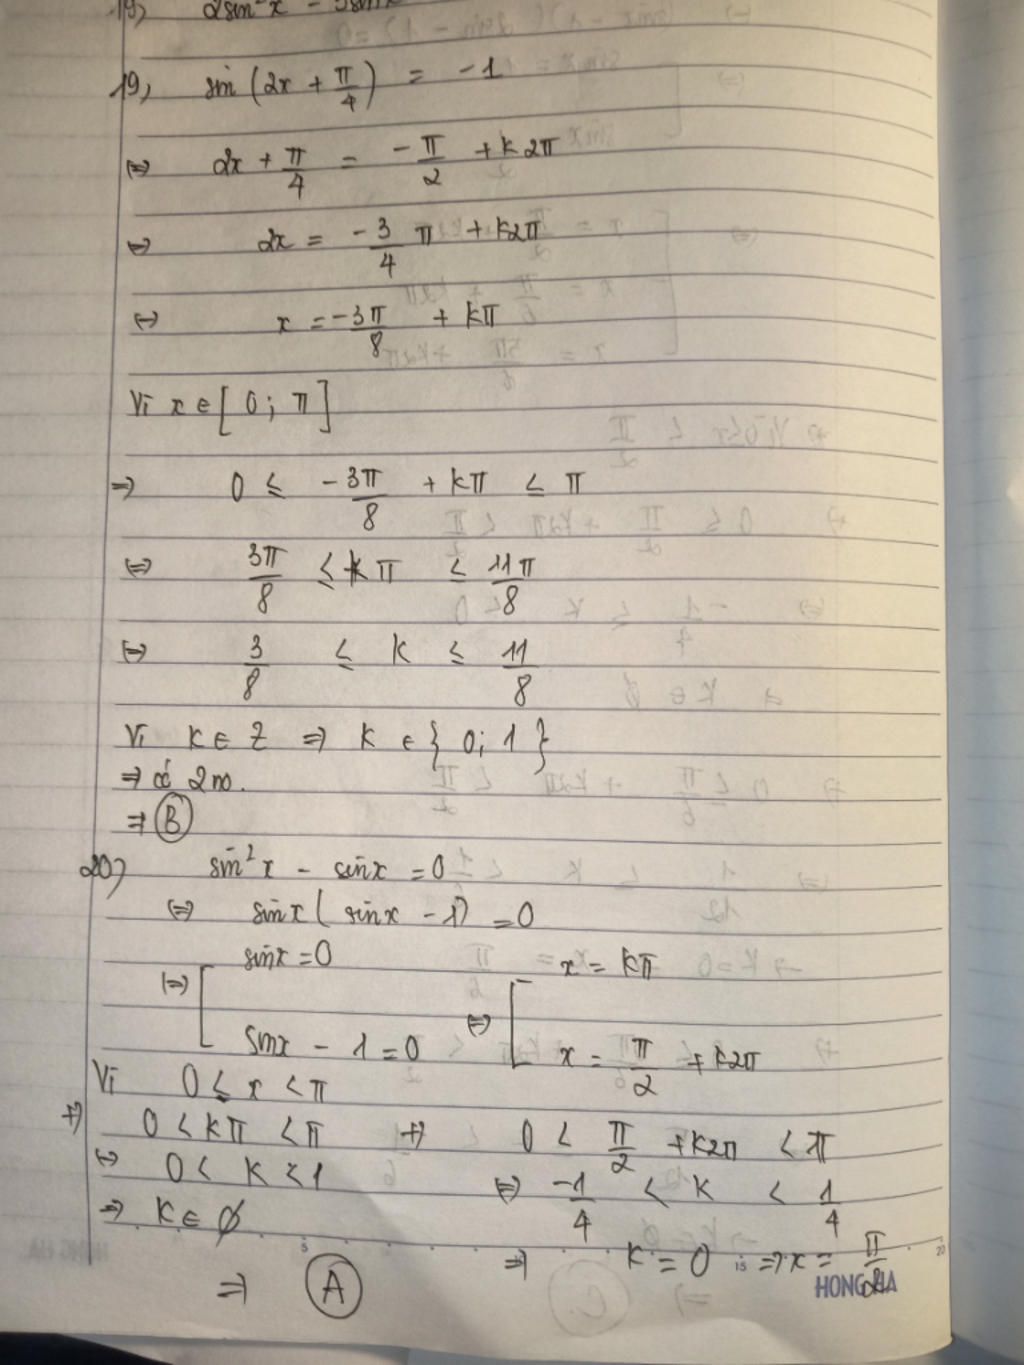 19) sin(2x + π/4) = -1
⇔ 2x + π/4 = -π/2 + k2π
⇔ 2x = -3/4 π + k2π
⇔ x = -3π/8 + kπ
Vì x ∈ [0; π]
⇒ 0 ≤ -3π/8 + kπ ≤ π
⇔ 3π/8 ≤ kπ ≤ 11π/8
⇔ 3/8 ≤ k ≤ 11/8
Vì k ∈ Z ⇒ k ∈ {0; 1}
⇒ có 2 no.
⇒ B
20) sin²x - sinx = 0
⇔ sinx(sinx - 1) = 0
⇔ [ sinx = 0 ⇔ [ x = kπ
sinx - 1 = 0 x = π/2 + k2π
Vì 0 ≤ x < π
+) 0 < kπ < π +) 0 < π/2 + k2π < π
⇔ 0 < k < 1 ⇔ -1/4 < k < 1/4
⇒ k ∈ ∅ ⇒ k = 0 ⇒ x = π/2
⇒ A
5 15 20
HONG HA